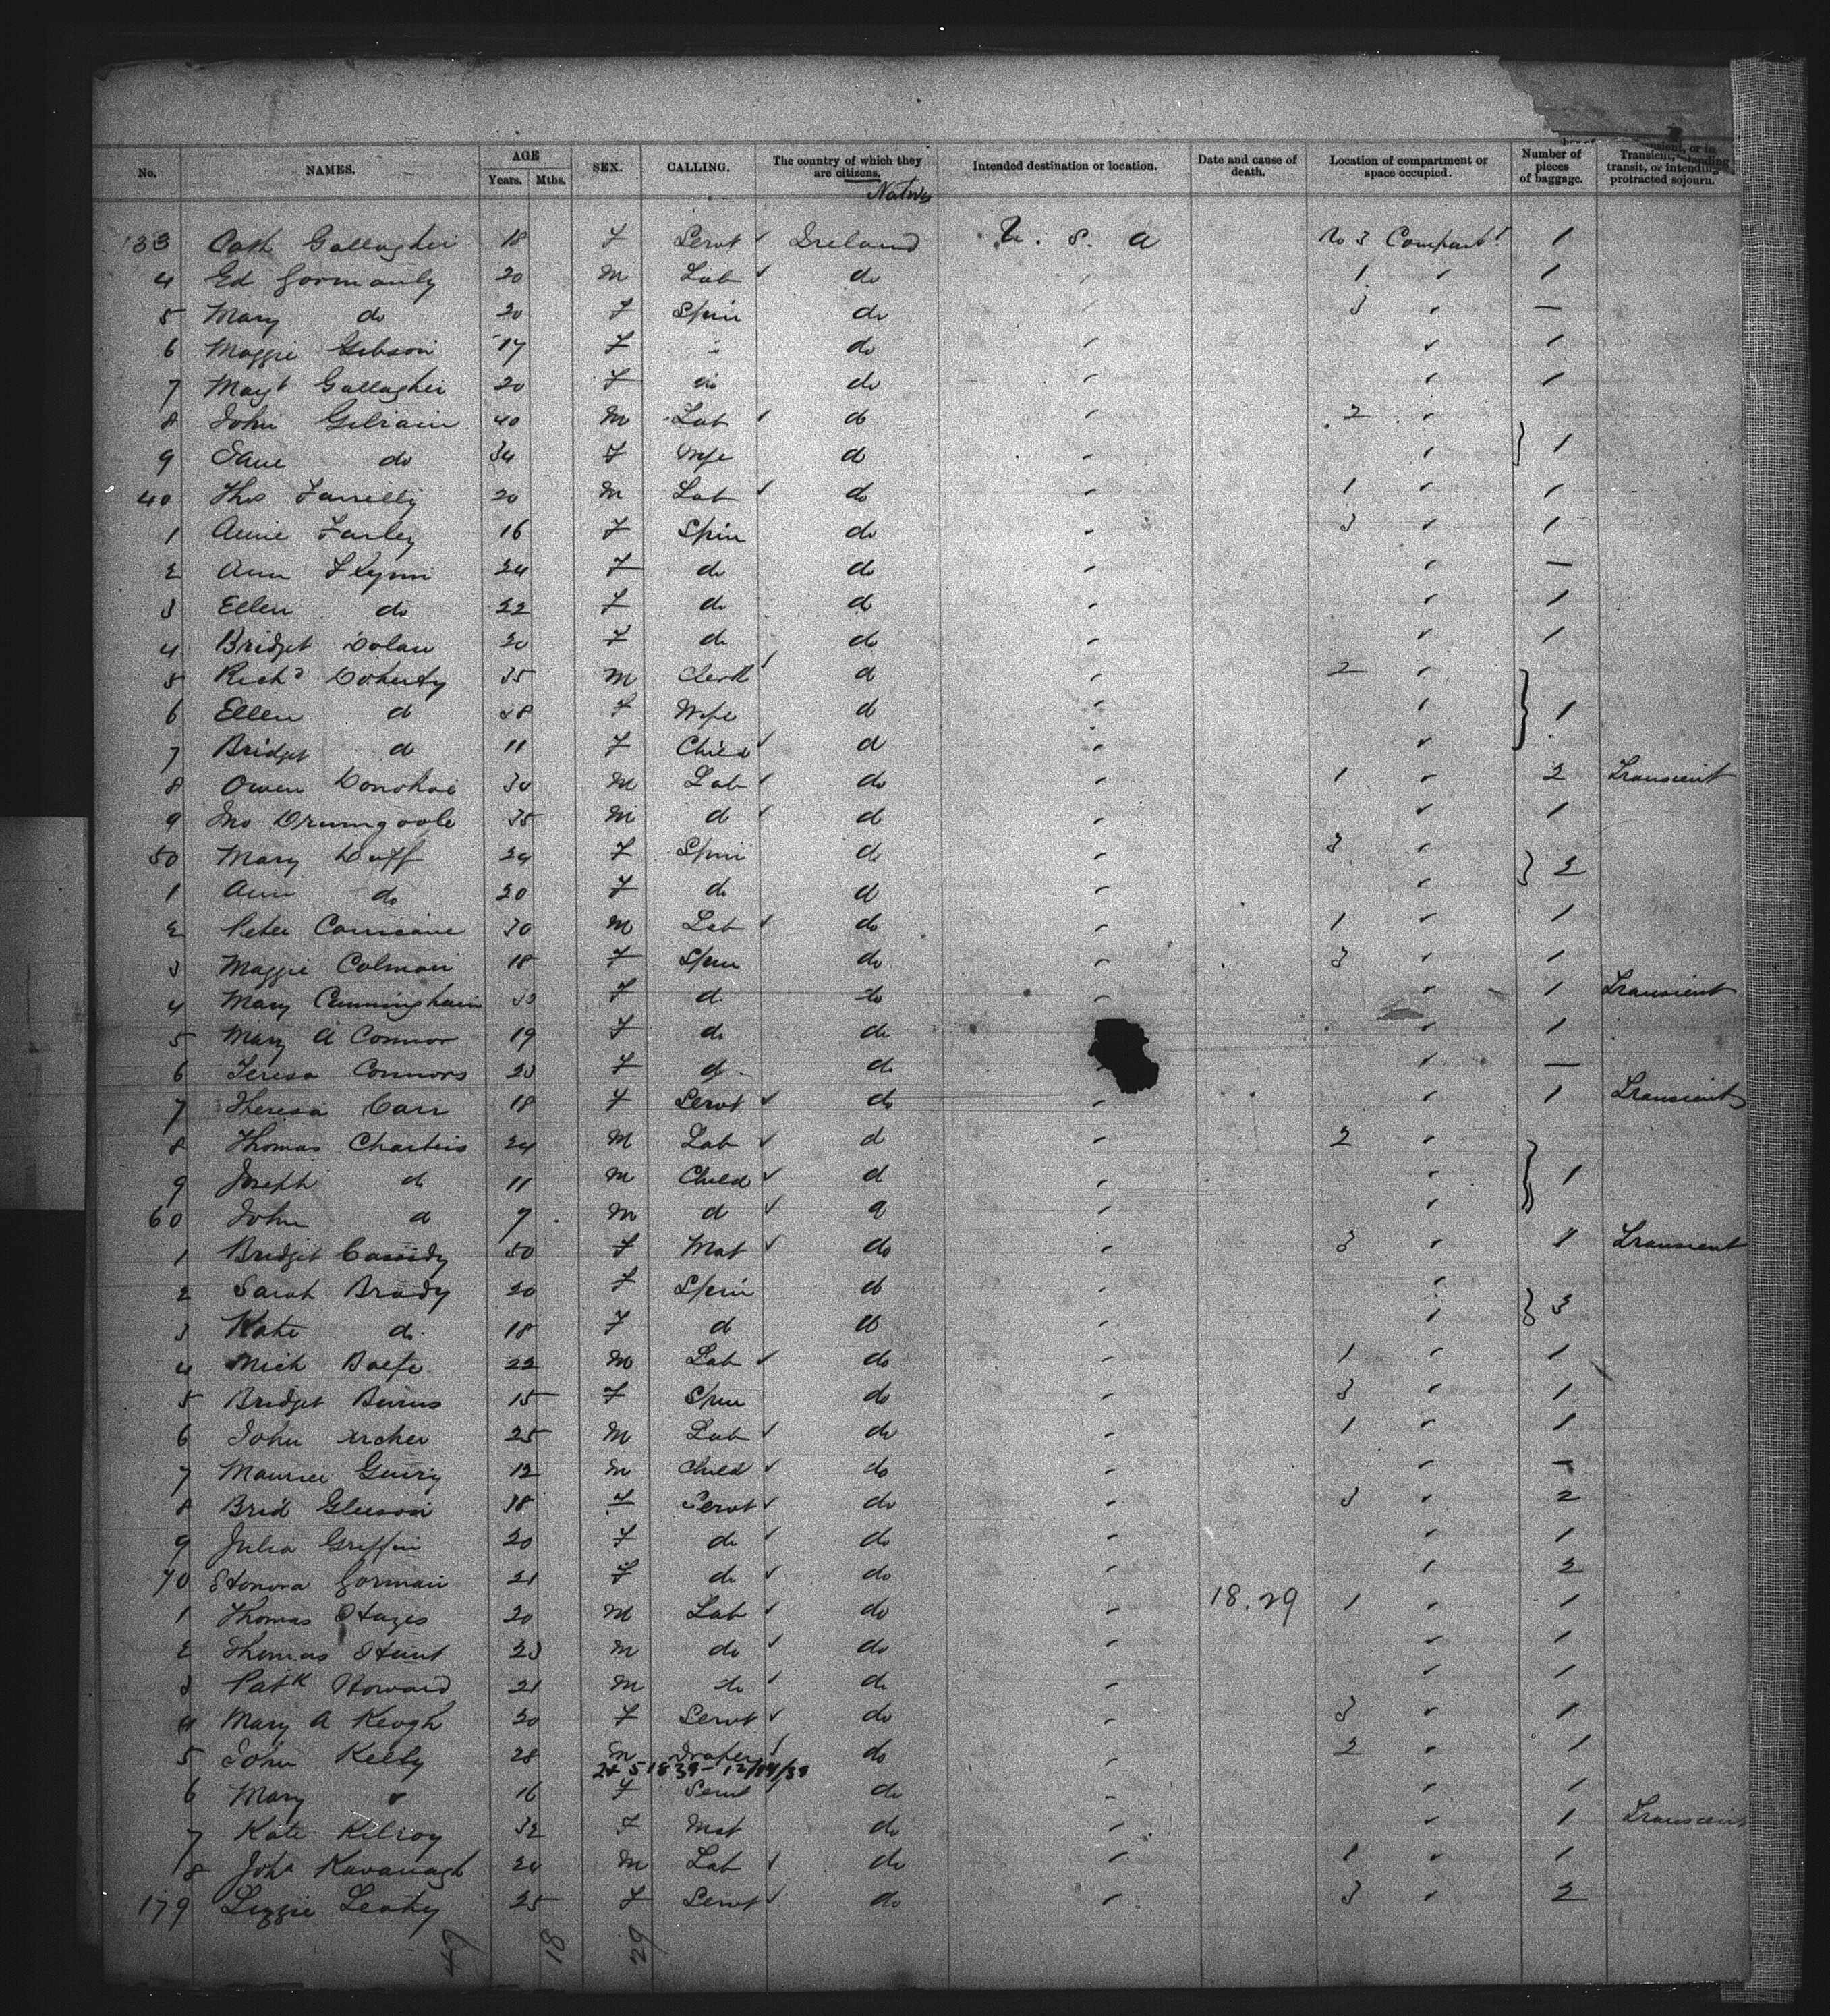 No. NAMES. AGE Years. Mths. SEX. CALLING. The country of which they are citizens. Natives Intended destination or location. Date and cause of death. Location of compartment or space occupied. Number of pieces of baggage. Transient, or in transit, or intending protracted sojourn.
133 Cath Gallagher 18 F Servt ✓ Ireland U. S. A No 3 Compart' 1
4 Ed Gormanly 20 M Lab ✓ do 1 1
5 Mary do 20 F Spin do 3 —
6 Maggie Gibson 17 F do 1
7 Magt Gallagher 20 F do do 1
8 John Gilrain 40 M Lab ✓ do 2
9 Jane do 34 F Wife do } 1
40 Thos Farrelly 20 M Lab ✓ do 1 1
1 Annie Farley 16 F Spin do 3 1
2 Ann Flynn 24 F do do —
3 Ellen do 22 F do do 1
4 Bridget Dolan 20 F do do 1
5 Richd Doherty 35 M Clerk ✓ do 2
6 Ellen do 28 F Wife do } 1
7 Bridget do 11 F Child ✓ do
8 Owen Donohoe 30 M Lab ✓ do 1 2 Transient
9 Jno Drumgoole 35 M do ✓ do 1
50 Mary Duff 24 F Spin do 3 } 2
1 Ann do 20 F do do
2 Peter 30 M Lab ✓ do 1 1
3 Maggie Colman 18 F Spin do 3 1
4 Mary Cunningham 30 F do do 1 Transient
5 Mary A Connor 19 F do do 1
6 Teresa Connors 20 F do do —
7 Theresa Carr 18 F Servt ✓ do 1 Transient
8 Thomas Charters 24 M Lab ✓ do 2
9 Joseph do 11 M Child ✓ do } 1
60 John do 9 M do ✓ do
1 Bridget Cassidy 50 F Mat ✓ do 3 1 Transient
2 Sarah Brady 20 F Spin do } 3
3 Kate do 18 F do do
4 Mich 22 M Lab ✓ do 1 1
5 Bridget Burns 15 F Spin do 3 1
6 John Archer 25 M Lab ✓ do 1 1
7 Maurice Guiry 12 M Child ✓ do —
8 Brid Gleeson 18 F Servt ✓ do 3 2
9 Julia Griffin 20 F do ✓ do 1
70 Honora Gorman 21 F do ✓ do 2
1 Thomas Hayes 20 M Lab ✓ do 18.29 1 1
2 Thomas Hunt 23 M do ✓ do 1
3 Patk Howard 21 M do ✓ do 1
4 Mary A Keogh 20 F Servt ✓ do 3 1
5 John Kelly 28 M Draper ✓ do 2 1
6 Mary 16 F Servt do 1
7 Kate Kilroy 32 F Mat do 1 Transient
8 John Kavanagh 24 M Lab ✓ do 1 1
179 Lizzie Leahy 25 F Servt ✓ do 3 2
47 18 29